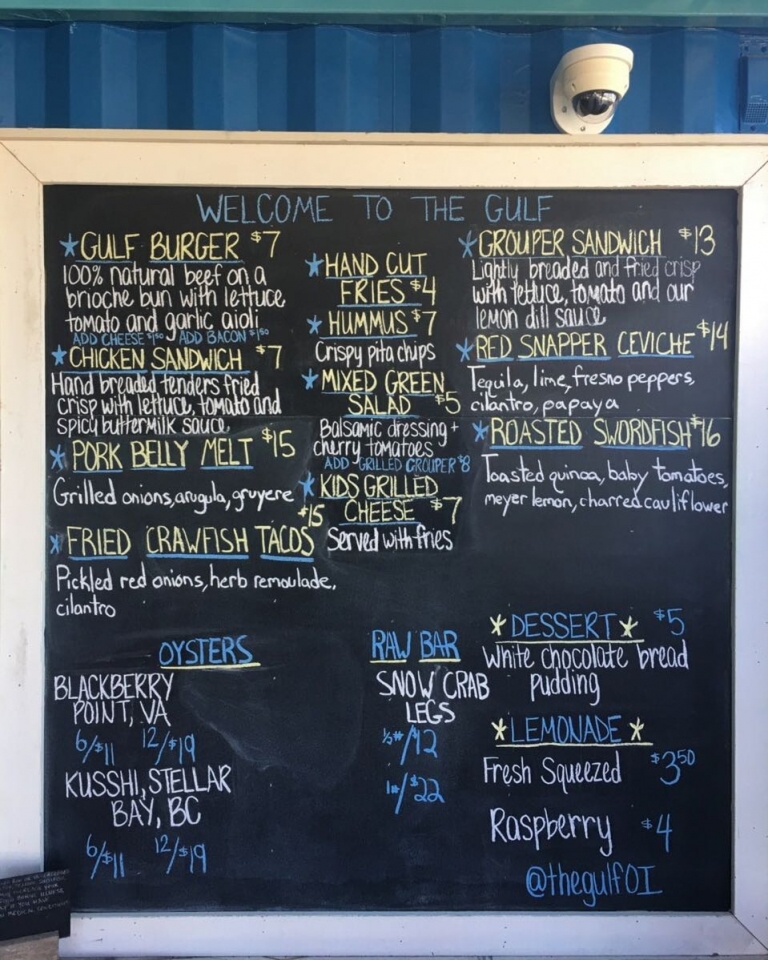 WELCOME TO THE GULF
GULF BURGER $7
100% natural beef on a
brioche bun with lettuce,
tomato and garlic aioli
ADD CHEESE $1.50 ADD BACON $1.50
CHICKEN SANDWICH $7
Hand breaded tenders fried
crisp with lettuce, tomato and
spicy buttermilk sauce
PORK BELLY MELT $15
Grilled onions, arugula, gruyere
FRIED CRAWFISH TACOS $15
Pickled red onions, herb remoulade,
cilantro
HAND CUT
FRIES $4
HUMMUS $7
Crispy pita chips
MIXED GREEN
SALAD $5
Balsamic dressing +
cherry tomatoes
ADD GRILLED GROUPER $8
KIDS GRILLED
CHEESE $7
Served with fries
GROUPER SANDWICH $13
Lightly breaded and fried crisp
with lettuce, tomato and our
lemon dill sauce
RED SNAPPER CEVICHE $14
Tequila, lime, fresno peppers,
cilantro, papaya
ROASTED SWORDFISH $16
Toasted quinoa, baby tomatoes,
meyer lemon, charred cauliflower
OYSTERS
BLACKBERRY
POINT, VA
6/$11 12/$19
KUSSHI, STELLAR
BAY, BC
6/$11 12/$19
RAW BAR
SNOW CRAB
LEGS
1/2#/$12
1#/$22
DESSERT $5
White chocolate bread
pudding
LEMONADE
Fresh Squeezed $3.50
Raspberry $4
@thegulfOI